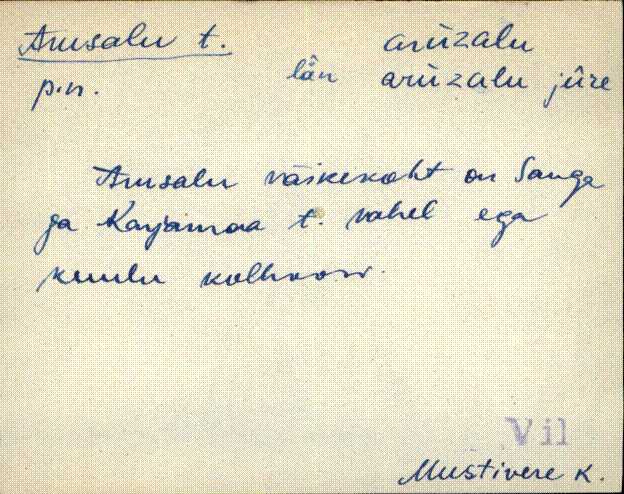 Arusalu t. arùzalu
p.n. län arùzalu jûre
Arusalu väikekoht on Sauga
ja Karjamaa t. vahel ega
kuulu kolhoosi.
Vil
Mustivere K.